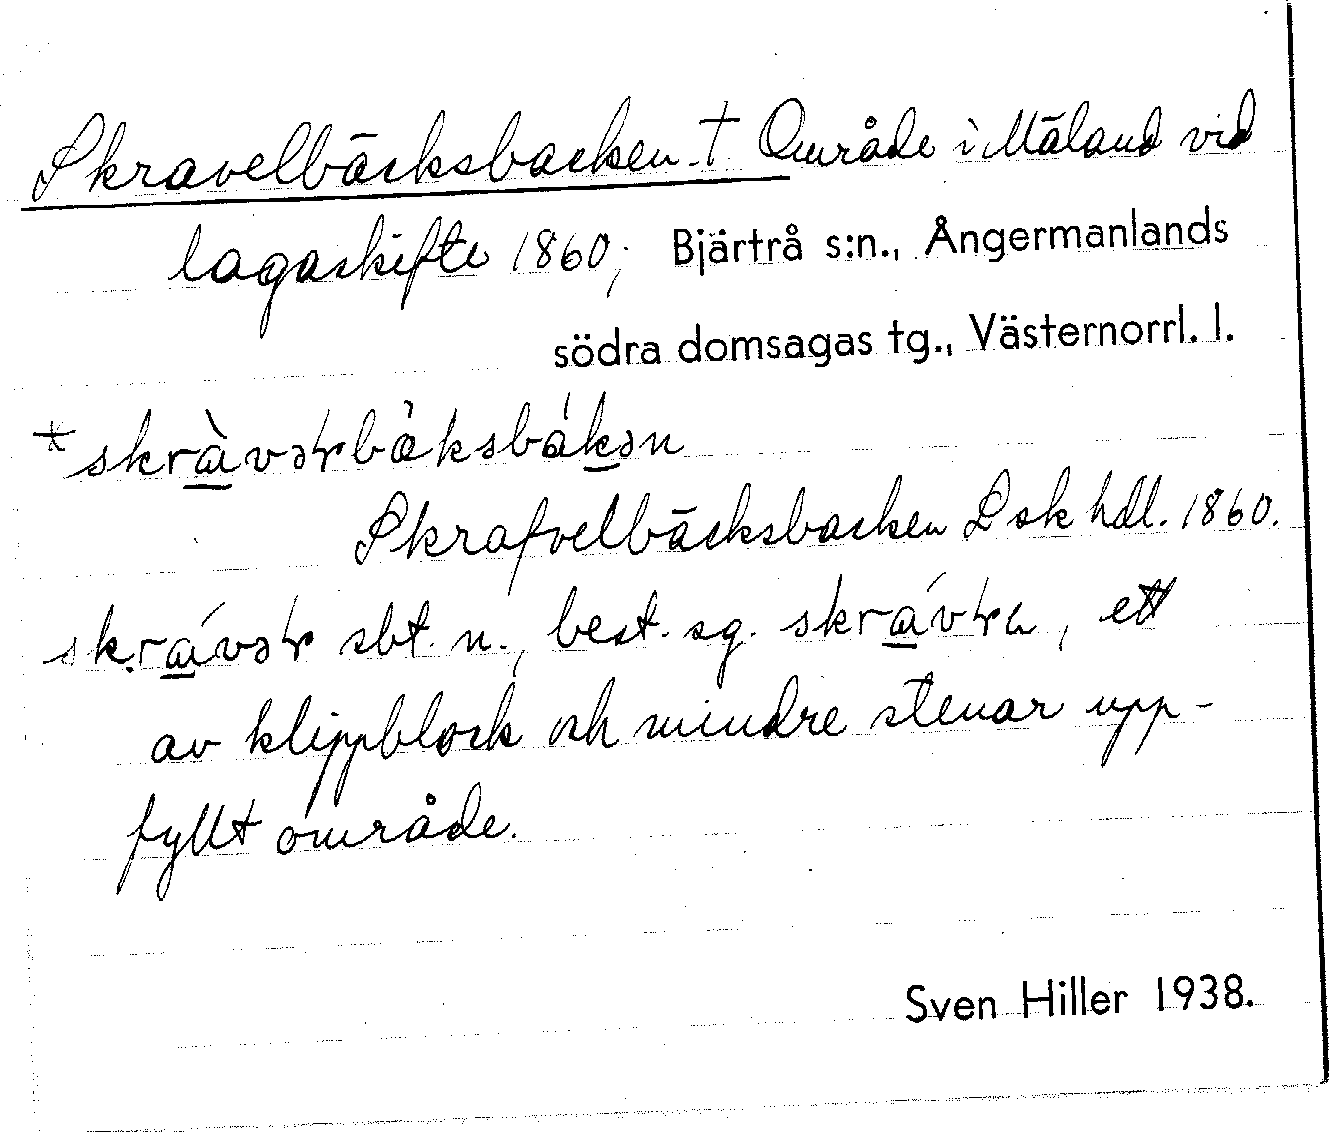 Skravelbäcksbacken † Område i Mäland vid
lagaskifte 1860; Bjärtrå s:n., Ångermanlands
södra domsagas tg., Västernorrl. l.
Skrafvelbäcksbacken L sk hdl. 1860.
sbt. n., best. sg. , ett
av klippblock och mindre stenar upp-
fyllt område.
Sven Hiller 1938.